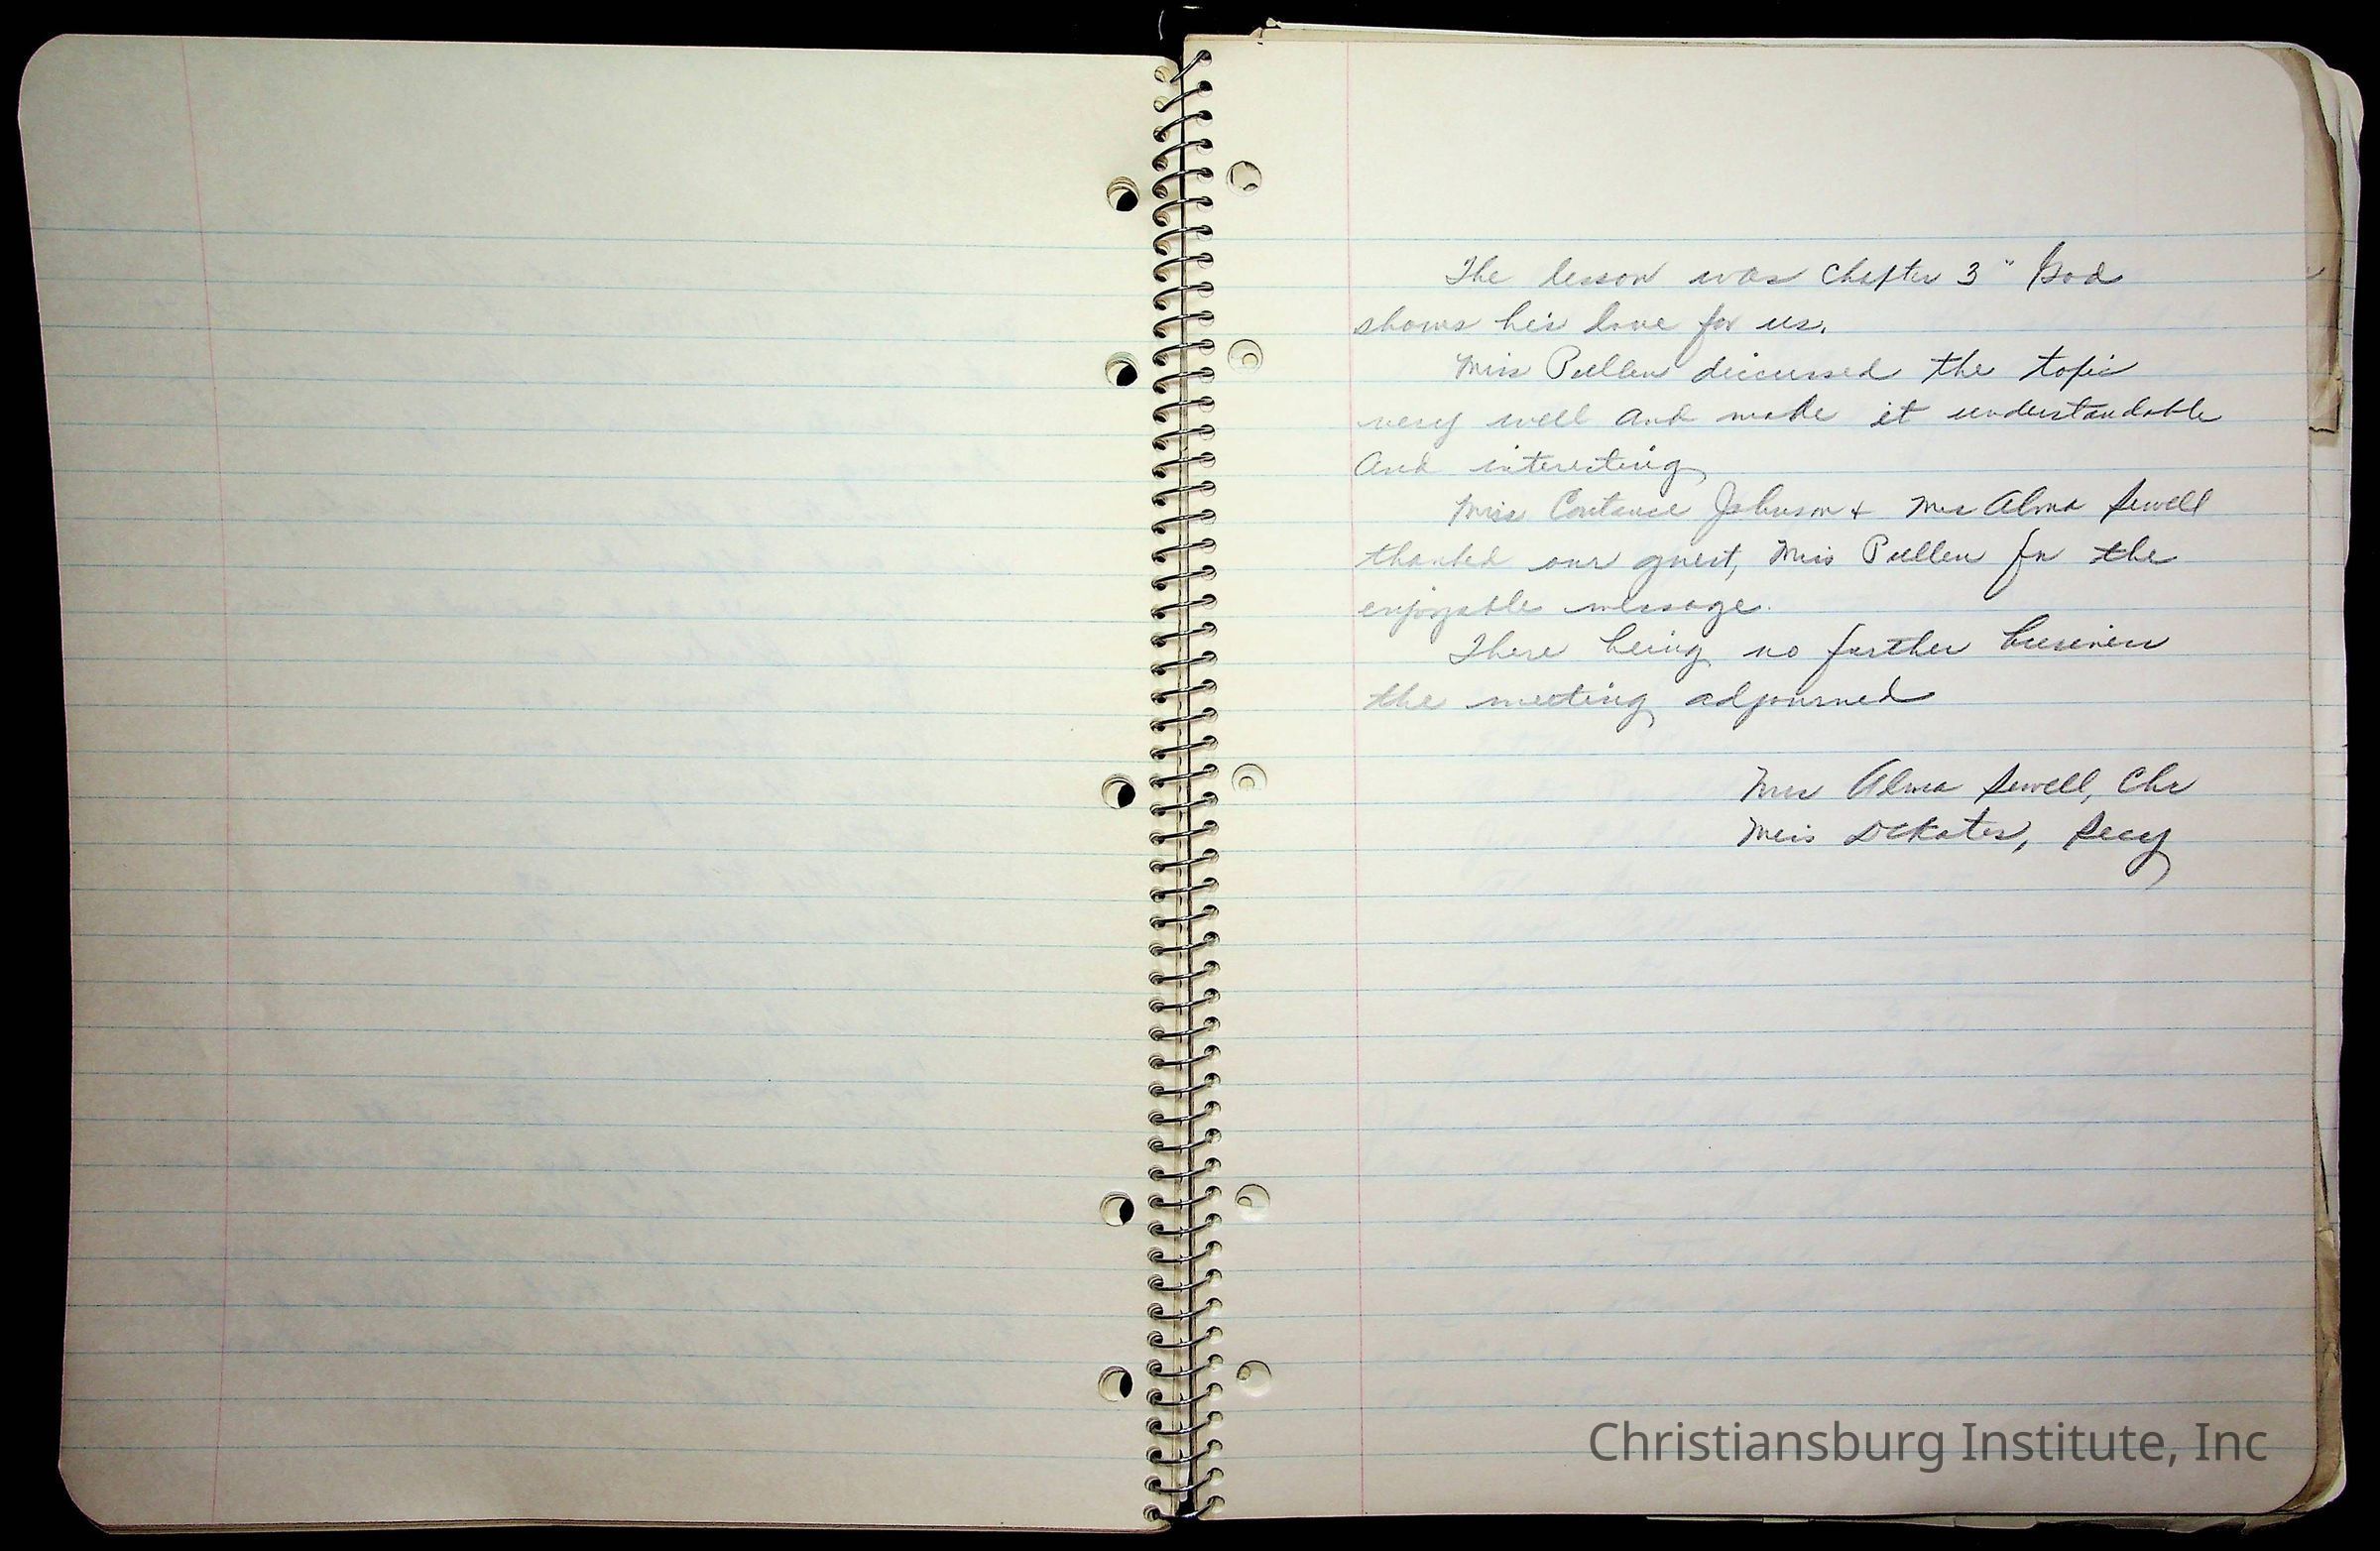 The lesson was Chapter 3 " God
shows his love for us.
Miss Pullen discussed the topic
very well and made it understandable
and interesting
Miss Contance Johnson & Mrs Alma Sewell
thanked our guest, Miss Pullen for the
enjoyable message.
There being no further business
the meeting adjourned
Mrs Alma Sewell, Chr
Miss Secy
Christiansburg Institute, Inc